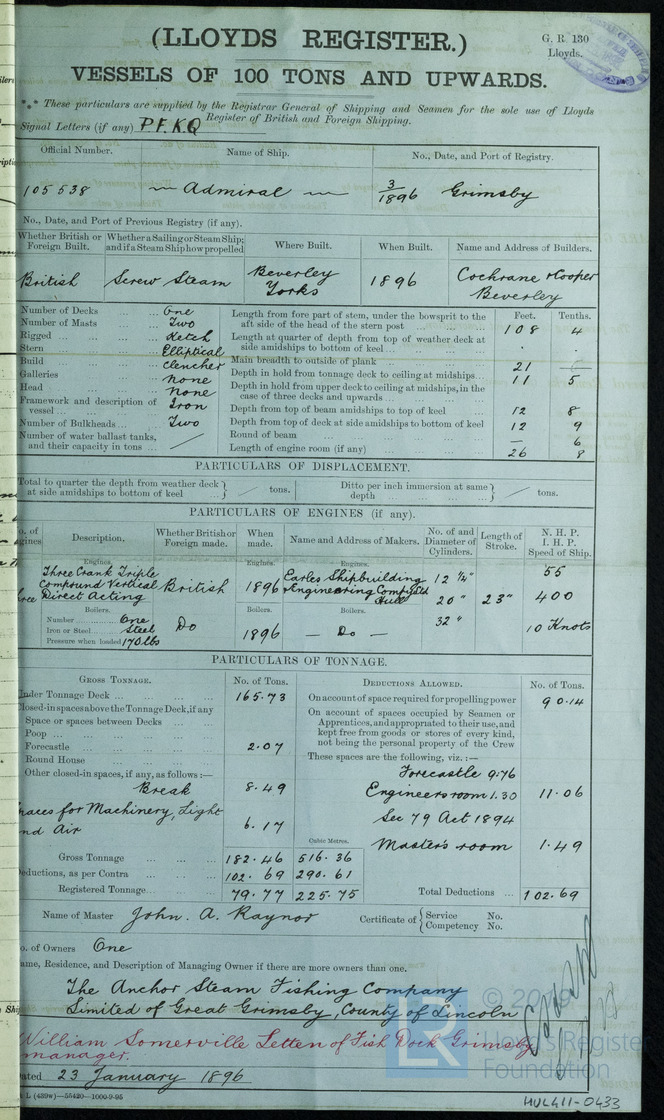 (LLOYDS REGISTER.)
G. R. 130
Lloyds.
VESSELS OF 100 TONS AND UPWARDS.
*** These particulars are supplied by the Registrar General of Shipping and Seamen for the sole use of Lloyds
Register of British and Foreign Shipping.
Signal Letters (if any) P.F.K.Q
Official Number. Name of Ship. No., Date, and Port of Registry.
105538 Admiral 3/1896 Grimsby
No., Date, and Port of Previous Registry (if any).
Whether British or Foreign Built. Whether a Sailing or Steam Ship; and if a Steam Ship how propelled Where Built. When Built. Name and Address of Builders.
British Screw Steam Beverley Yorks 1896 Cochrane & Cooper Beverley
Number of Decks One
Number of Masts Two
Rigged Ketch
Stern Elliptical
Build Clencher
Galleries None
Head None
Framework and description of vessel Iron
Number of Bulkheads Two
Number of water ballast tanks, and their capacity in tons /
Feet. Tenths.
Length from fore part of stem, under the bowsprit to the aft side of the head of the stern post 108 4
Length at quarter of depth from top of weather deck at side amidships to bottom of keel . .
Main breadth to outside of plank 21 —
Depth in hold from tonnage deck to ceiling at midships 11 5
Depth in hold from upper deck to ceiling at midships, in the case of three decks and upwards
Depth from top of beam amidships to top of keel 12 8
Depth from top of deck at side amidships to bottom of keel 12 9
Round of beam — 6
Length of engine room (if any) 26 8
PARTICULARS OF DISPLACEMENT.
Total to quarter the depth from weather deck at side amidships to bottom of keel / tons. Ditto per inch immersion at same depth / tons.
PARTICULARS OF ENGINES (if any).
o. of gines. Description. Whether British or Foreign made. When made. Name and Address of Makers. No. of and Diameter of Cylinders. Length of Stroke. N. H. P. I. H. P. Speed of Ship.
Engines. Engines. Engines.
Three Crank Triple Compound Vertical Direct Acting British 1896 Earles Shipbuilding & Engineering Compy Ltd Hull 12 1/4" 20" 32" 23" 55 400 10 Knots
Boilers. Boilers. Boilers.
Number One
Iron or Steel Steel
Pressure when loaded 170 lbs
Do 1896 — Do —
PARTICULARS OF TONNAGE.
GROSS TONNAGE. No. of Tons. DEDUCTIONS ALLOWED. No. of Tons.
nder Tonnage Deck 165.73
losed-in spaces above the Tonnage Deck, if any
Space or spaces between Decks
Poop
Forecastle 2.07
Round House
Other closed-in spaces, if any, as follows:—
Break 8.49
paces for Machinery, Light nd Air 6.17
Cubic Metres.
Gross Tonnage 182.46 516.36
eductions, as per Contra 102.69 290.61
Registered Tonnage 79.77 225.75
On account of space required for propelling power 90.14
On account of spaces occupied by Seamen or Apprentices, and appropriated to their use, and kept free from goods or stores of every kind, not being the personal property of the Crew
These spaces are the following, viz.:—
Forecastle 9.76
Engineers room 1.30 11.06
Sec 79 Act 1894
Master's room 1.49
Total Deductions 102.69
Name of Master John. A. Raynor Certificate of { Service No. Competency No.
o. of Owners One
ame, Residence, and Description of Managing Owner if there are more owners than one.
The Anchor Steam Fishing Company
Limited of Great Grimsby, County of Lincoln
William Somerville Letten of Fish Dock Grimsby
manager.
ated 23 January 1896
L (439w)—55420—1000-9-95
Lloyd's Register
Foundation
HUL411-0433